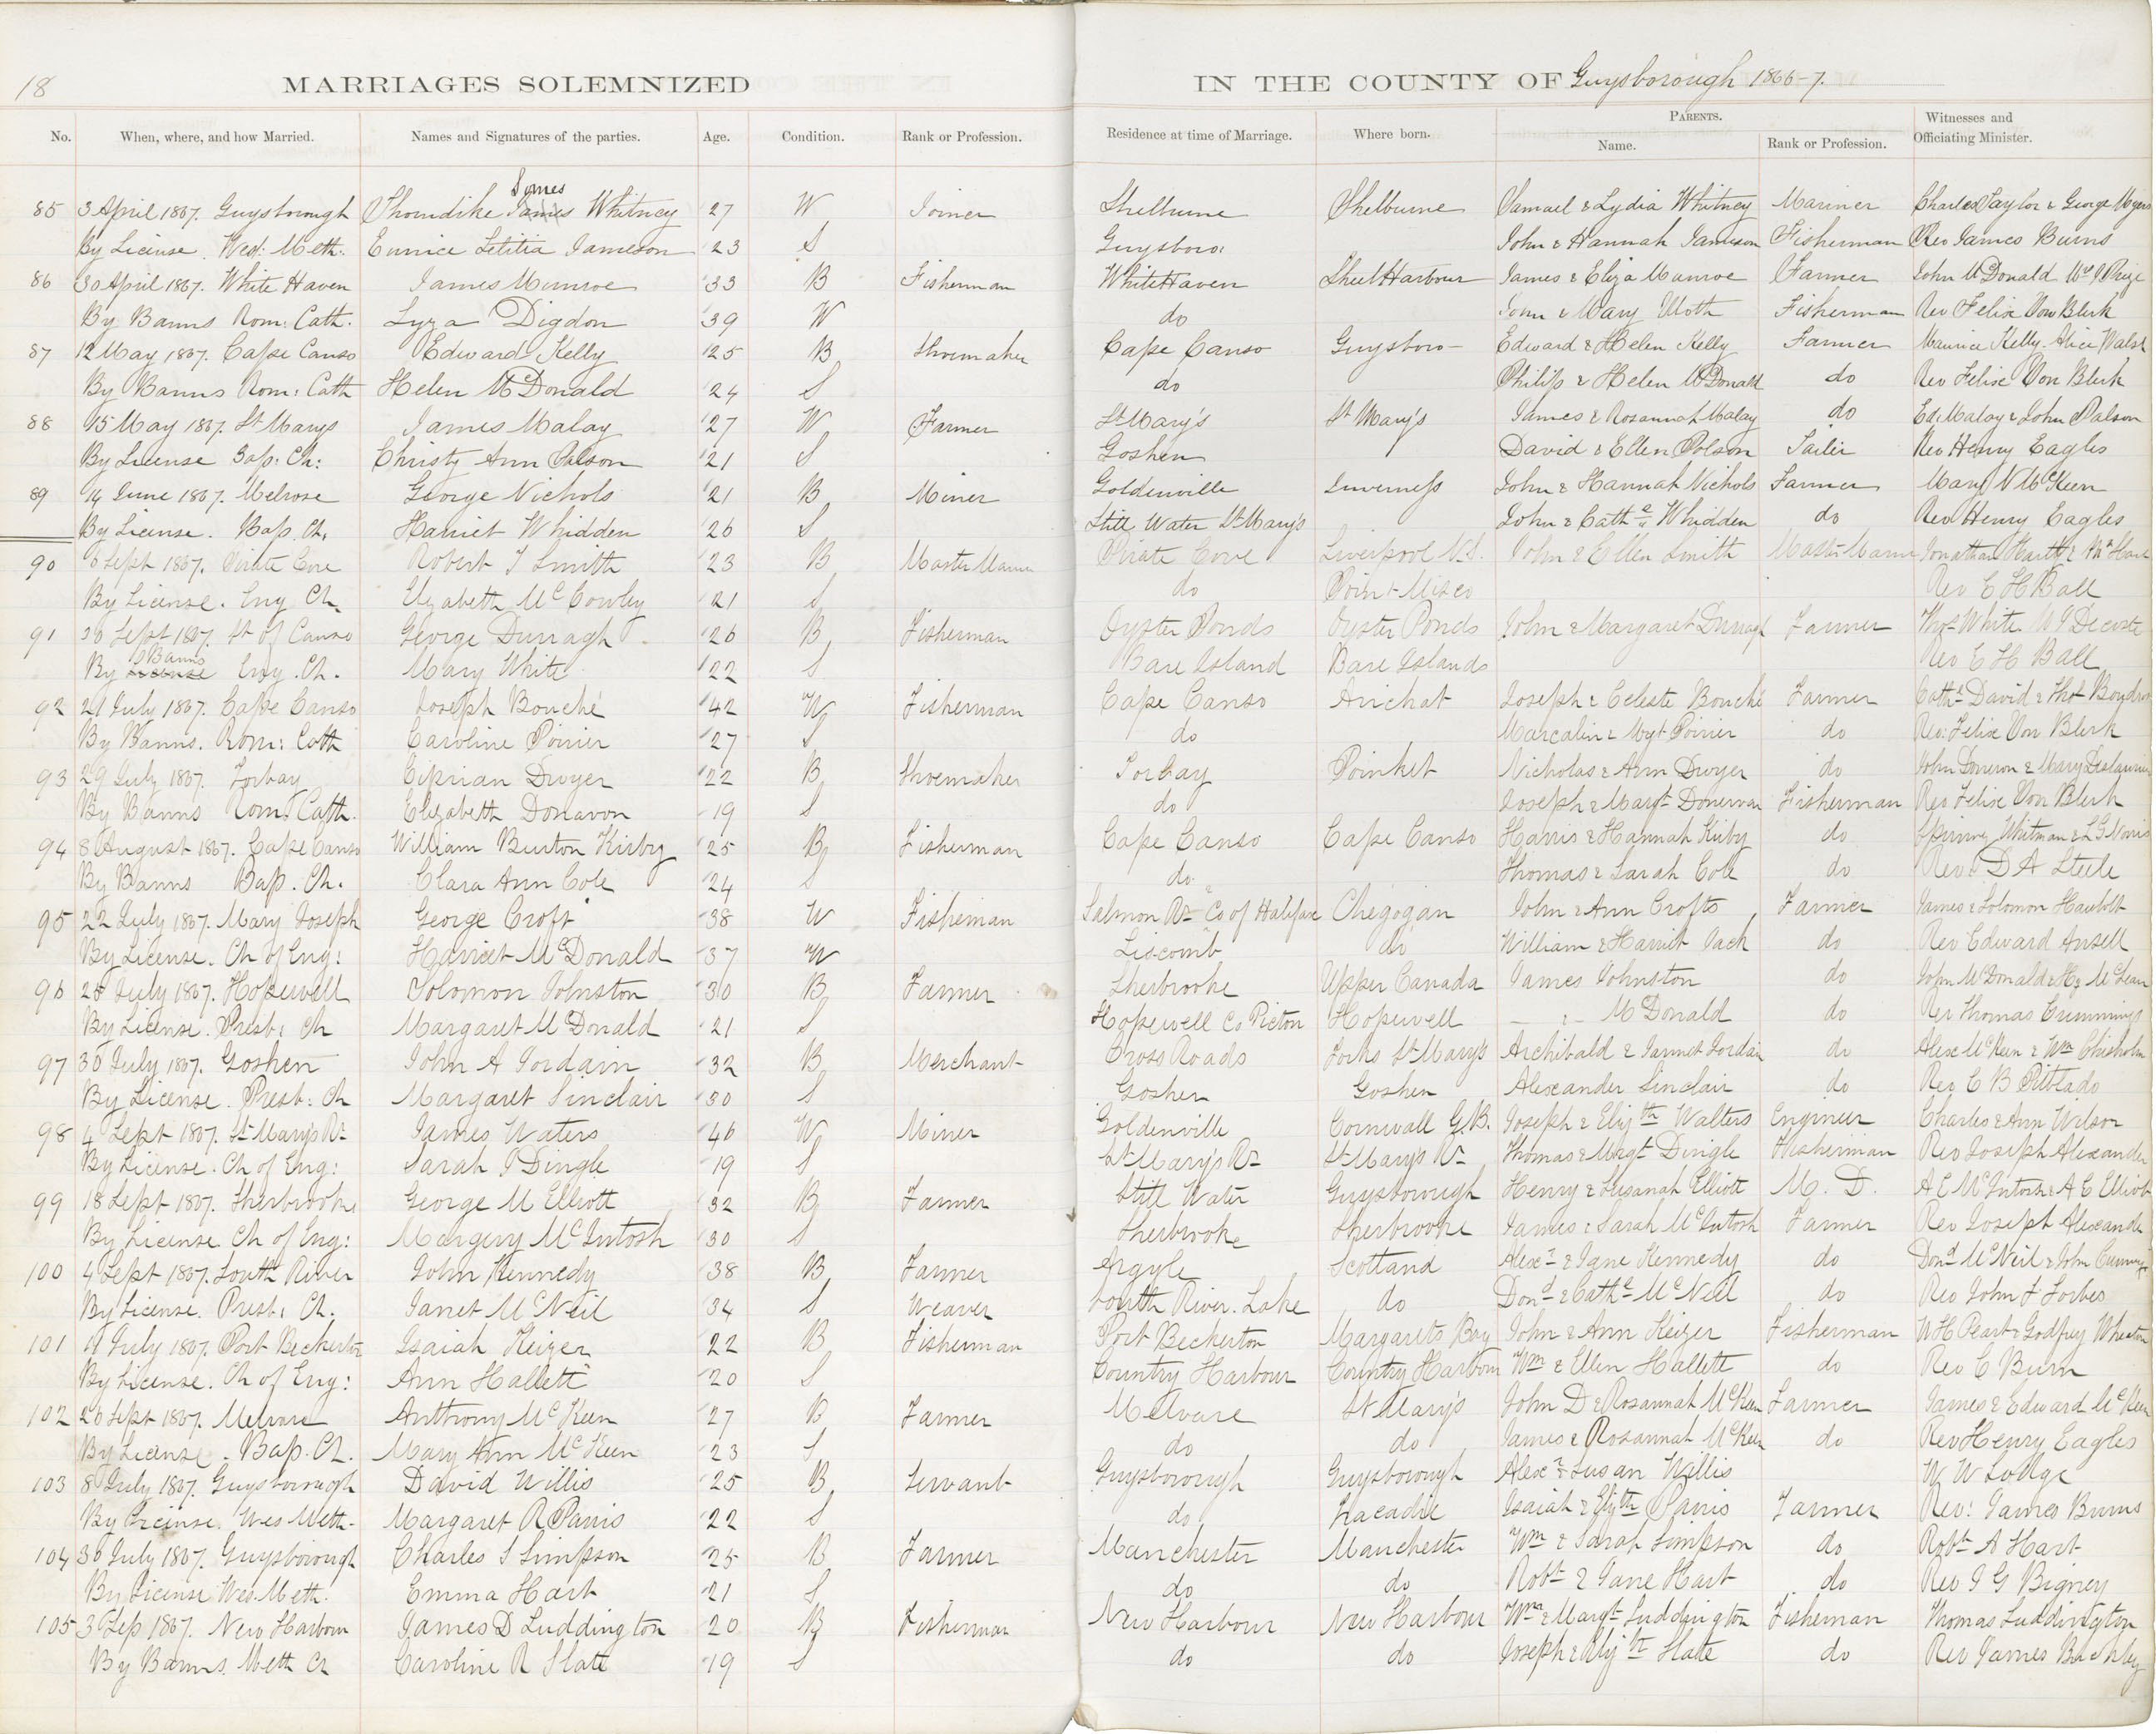 18 MARRIAGES SOLEMNIZED IN THE COUNTY OF Guysborough 1866-7.
No. When, where, and how Married. Names and Signatures of the parties. Age. Condition. Rank or Profession. Residence at time of Marriage. Where born. Parents. Name. Rank or Profession. Witnesses and Officiating Minister.
Somes
85 3 April 1867. Guysborough Thorndike James Whitney 27 W Joiner Shelburne Shelburne Samuel & Lydia Whitney Mariner Charles Taylor & George Myers
By License Wes: Meth. Eunice Letitia Jameson 23 S Guysboro: John & Hannah Jameson Fisherman Rev James Burns
86 30 April 1867. White Haven James Munroe 33 B Fisherman White Haven Sheet Harbour James & Eliza Munroe Farmer John McDonald
By Banns Rom: Cath. Lyza Digdon 39 W do John & Mary Moth Fisherman Rev Felix Von Blerk
87 12 May 1867. Cape Canso Edward Kelly 25 B Shoemaker Cape Canso Guysboro Edward & Helen Kelly Farmer Maurice Kelly. Alice Walsh
By Banns Rom: Cath Helen McDonald 24 S do Philip & Helen McDonald do Rev Felix Von Blerk
88 15 May 1867. St Marys James Malay 27 W Farmer St Mary's St Mary's James & Rosannah Malay do Ed Malay & John Polson
By License Bap: Ch: Christy Ann Polson 21 S Goshen David & Ellen Polson Tailor Rev Henry Eagles
89 14 June 1867. Melrose George Nichols 21 B Miner Goldenville Inverness John & Hannah Nichols Farmer Mary N McKeen
By License. Bap. Ch. Harriet Whidden 26 S Still Water St Mary's John & Cathe Whidden do Rev Henry Eagles
90 6 Sept 1867. Pirate Cove Robert J Smith 23 B Master Marin Pirate Cove Liverpool N.S. John & Ellen Smith Master Marin Jonathan Hartt &
By License. Eng Ch. Elizabeth McCowley 21 S do Point Misco Rev C H Ball
91 30 Sept 1867. St of Canso George Durragh 26 B Fisherman Oyster Ponds Oyster Ponds John & Margaret Durragh Farmer Thos White W J Decoste
Banns
By License Eng. Ch. Mary White 22 S Bare Island Bare Islands Rev C H Ball
92 21 July 1867. Cape Canso Joseph Bouché 42 W Fisherman Cape Canso Arichat Joseph & Celeste Bouché Farmer Cathe David & Thos Boudrot
By Banns. Rom: Cath Caroline Poirier 27 S do Marcalin & Mgt Poirier do Rev: Felix Von Blerk
93 29 July 1867. Torbay Ciprian Dwyer 22 B Shoemaker Torbay Poinket Nicholas & Ann Dwyer do John & Mary
By Banns Rom. Cath. Elizabeth Donavon 19 S do Joseph & Margt Donervan Fisherman Rev Felix Von Blerk
94 8 August 1867. Cape Canso William Burton Kirby 25 B Fisherman Cape Canso Cape Canso Harris & Hannah Kirby do Spinney Whitman & L G Norris
By Banns Bap. Ch. Clara Ann Cole 24 S do Thomas & Sarah Cole do Rev. D A Steele
95 22 July 1867. Mary Joseph George Croft 38 W Fisherman Salmon Rr Co of Halifax Chegogan John & Ann Crofts Farmer James & Solomon Hawbolt
By License. Ch of Eng: Harriet McDonald 37 W Liscomb do William & Harriet Jack do Rev Edward Ansell
96 25 July 1867. Hopewell Solomon Johnston 30 B Farmer Sherbrooke Upper Canada James Johnston do John McDonald & Hy McLean
By License. Presb: Ch Margaret McDonald 21 S Hopewell Co Picton Hopewell — : — McDonald do Rev Thomas Cummings
97 30 July 1867. Goshen John A Jordain 32 B Merchant Cross Roads Forks St Mary's Archibald & Jannet Jordain do Alex McKeen & Wm Chisholm
By License. Presb: Ch Margaret Sinclair 30 S Goshen Goshen Alexander Sinclair do Rev C B Pitblado
98 4 Sept 1867. St Mary's Rr James Waters 46 W Miner Goldenville Cornwall G.B. Joseph & Elizth Walters Engineer Charles & Ann Wilson
By License. Ch of Eng: Sarah J Dingle 19 S St Mary's Rr St Mary's Rr Thomas & Margt Dingle Fisherman Rev Joseph Alexander
99 18 Sept 1867. Sherbrooke George M Elliott 32 B Farmer Still Water Guysborough Henry & Susanah Elliott M. D. A C McIntosh & A C Elliott
By License Ch of Eng: Margery McIntosh 30 S Sherbrooke Sherbrooke James & Sarah McIntosh Farmer Rev Joseph Alexander
100 4 Sept 1867. South River John Kennedy 38 B Farmer Argyle Scotland Alexr & Jane Kennedy do Dond McNeil & John Cummings
By License. Presb: Ch. Janet McNeil 34 S Weaver South River. Lake do Dond & Cathe McNeil do Rev John F Forbes
101 9 July 1867. Port Beckerton Isaiah Keizer 22 B Fisherman Port Beckerton Margarets Bay John & Ann Keizer Fisherman W H Peart & Godfrey Wheaton
By License. Ch of Eng: Ann Hallett 20 S Country Harbour Country Harbour Wm & Ellen Hallett do Rev C Burn
102 26 Sept 1867. Melvare Anthony McKeen 27 B Farmer Melvare St Mary's John D & Rosannah McKeen Farmer James & Edward McKeen
By License. Bap. Ch. Mary Ann McKeen 23 S do do James & Rosannah McKeen do Rev Henry Eagles
103 8 July 1867. Guysborough David Willis 25 B Servant Guysborough Guysborough Alexr & Susan Willis W W Lodge
By License. Wes Meth. Margaret R Parris 22 S do Tracadie Isaiah & Elizth Parris Farmer Rev: James Burns
104 30 July 1867. Guysborough Charles S Simpson 25 B Farmer Manchester Manchester Wm & Sarah Simpson do Robt A Hart
By License Wes. Meth. Emma Hart 21 S do do Robt & Jane Hart do Rev J G Bigney
105 3 Sep 1867. New Harbour James D Luddington 20 B Fisherman New Harbour New Harbour Wm & Margt Luddington Fisherman Thomas Luddington
By Banns. Meth Ch Caroline R Slate 19 S do do Joseph & Elizth Slate do Rev James Buckley